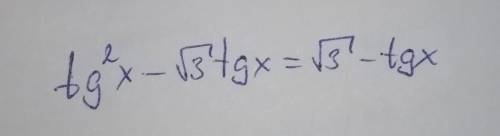 tg²x − √3 tgx = √3 − tgx